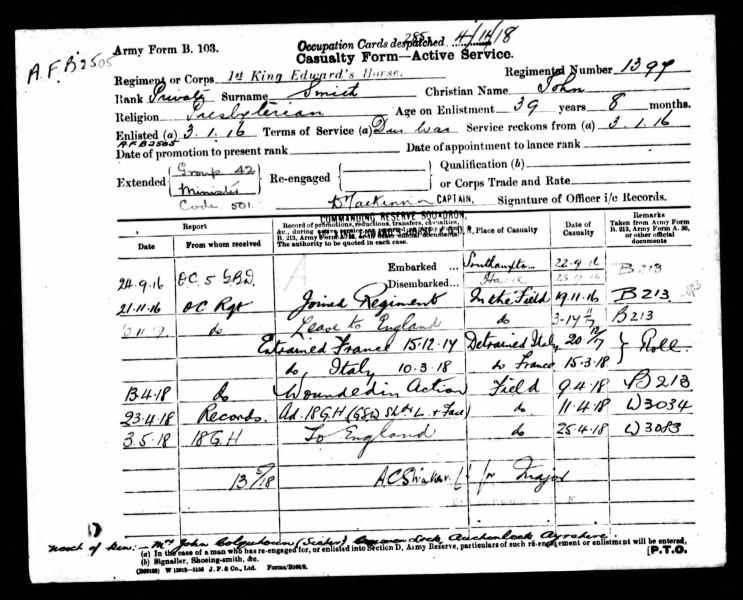 A.F.B 2505
Army Form B. 103.
Occupation Cards despatched 285 4/12/18
Casualty Form—Active Service.
Regiment or Corps 1st King Edward's Horse. Regimental Number 1397
Rank Private Surname Smith Christian Name John
Religion Presbyterian Age on Enlistment 39 years 8 months.
Enlisted (a) 3.1.16 Terms of Service (a) Dur War Service reckons from (a) 3.1.16
A.F.B 2505
Date of promotion to present rank Date of appointment to lance rank
Extended Group 42 Re-engaged Qualification (b)
Minister or Corps Trade and Rate
Code 501. CAPTAIN, Signature of Officer i/c Records.
COMMANDING RESERVE SQUADRON,
Report Record of promotions, reductions, transfers, casualties, &c., during active service Place of Casualty Date of Casualty Remarks Taken from Army Form B. 213, Army Form A. 36, or other official documents
Date From whom received The authority to be quoted in each case.
Embarked ... Southampton 22.9.16
24.9.16 OC. 5 GBD Disembarked ... B213
21.11.16 OC Rgt Joined Regiment In the Field 19.11.16 B213
do Leave to England do B213
Entrained France 15.12.17 Detrained Italy 20 12/17 Roll
do, Italy 10.3.18 do France 15.3.18
13.4.18 do Wounded in Action Field 9.4.18 B213
23.4.18 Records. Ad. 18 G.H (GSW Shdr L. & Face) do 11.4.18 W3034
3.5.18 18 G.H To England do 25.4.18 W3083
13 5/18 for Major
Next of Kin:- John Colquhoun (Sister) Auchenlock Ayrshire
(a) In the case of a man who has re-engaged for, or enlisted into Section D, Army Reserve, particulars of such re-engagement or enlistment will be entered.
(b) Signaller, Shoeing-smith, &c. [P.T.O.
J. P. & Co., Ltd.